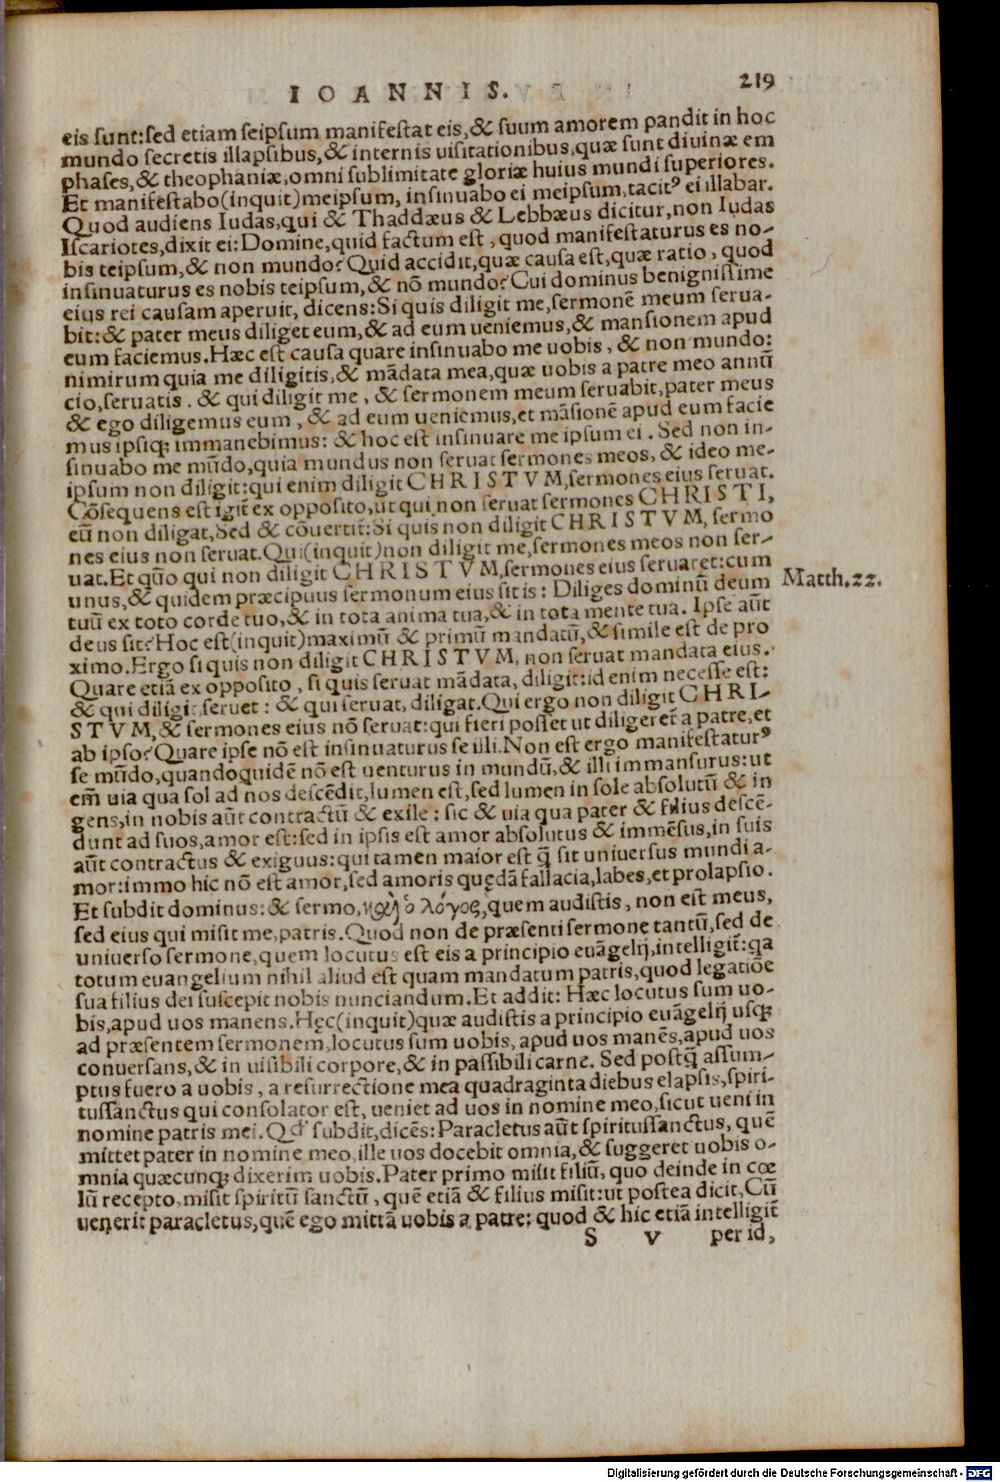 IOANNIS. 219
eis sunt: sed etiam seipsum manifestat eis, & suum amorem pandit in hoc
mundo secretis illapsibus, & internis uisitationibus, quæ sunt diuinæ em
phases, & theophaniæ, omni sublimitate gloriæ huius mundi superiores.
Et manifestabo (inquit) meipsum, insinuabo ei meipsum, tacitꝰ ei illabar.
Quod audiens Iudas, qui & Thaddæus & Lebbæus dicitur, non Iudas
Iscariotes, dixit ei: Domine, quid factum est, quod manifestaturus es no-
bis teipsum, & non mundo? Quid accidit, quæ causa est, quæ ratio, quod
insinuaturus es nobis teipsum, & nõ mundo? Cui dominus benignissime
eius rei causam aperuit, dicens: Si quis diligit me, sermonẽ meum serua-
bit: & pater meus diliget eum, & ad eum ueniemus, & mansionem apud
eum faciemus. Hæc est causa quare insinuabo me uobis, & non mundo:
nimirum quia me diligitis, & mãdata mea, quæ uobis a patre meo annũ
cio, seruatis. & qui diligit me, & sermonem meum seruabit, pater meus
& ego diligemus eum, & ad eum ueniemus, et mãsionẽ apud eum facie
mus ipsiqꝫ immanebimus: & hoc est insinuare me ipsum ei. Sed non in-
sinuabo me mũdo, quia mundus non seruat sermones meos, & ideo me-
ipsum non diligit: qui enim diligit CHRISTVM, sermones eius seruat.
Cõsequens est igit̃ ex opposito, ut qui non seruat sermones CHRISTI,
eũ non diligat, Sed & cõuertit̃: Si quis non diligit CHRISTVM, sermo
nes eius non seruat. Qui (inquit) non diligit me, sermones meos non ser-
uat. Et quõ qui non diligit CHRISTVM, sermones eius seruaret: cum
unus, & quidem præcipuus sermonum eius sit is: Diliges dominũ deum
tuũ ex toto corde tuo, & in tota anima tua, & in tota mente tua. Ipse aũt
deus sit? Hoc est (inquit) maximũ & primũ mandatũ, & simile est de pro
ximo. Ergo si quis non diligit CHRISTVM, non seruat mandata eius.
Quare etiã ex opposito, si quis seruat mãdata, diligit: id enim necesse est:
& qui diligit, seruet: & qui seruat, diligat. Qui ergo non diligit CHRI-
STVM, & sermones eius nõ seruat: qui fieri posset ut diligeret̃ a patre, et
ab ipso? Quare ipse nõ est insinuaturus se illi. Non est ergo manifestaturꝰ
se mũdo, quandoquidẽ nõ est uenturus in mundũ, & illi immansurus: ut
em̃ uia qua sol ad nos descẽdit, lumen est, sed lumen in sole absolutũ & in
gens, in nobis aũt contractũ & exile: sic & uia qua pater & filius descẽ-
dunt ad suos, amor est: sed in ipsis est amor absolutus & immẽsus, in suis
aũt contractus & exiguus: qui tamen maior est q̃ sit uniuersus mundi a-
mor: immo hic nõ est amor, sed amoris quędã fallacia, labes, et prolapsio.
Et subdit dominus: & sermo, καὶ ὁ λόγος, quem audistis, non est meus,
sed eius qui misit me, patris. Quod non de præsenti sermone tantũ, sed de
uniuerso sermone, quem locutus est eis a principio euãgelij, intelligit̃: qa
totum euangelium nihil aliud est quam mandatum patris, quod legatiõe
sua filius dei suscepit nobis nunciandum. Et addit: Hæc locutus sum uo-
bis, apud uos manens. Hęc (inquit) quæ audistis a principio euãgelij usqꝫ
ad præsentem sermonem, locutus sum uobis, apud uos manẽs, apud uos
conuersans, & in uisibili corpore, & in passibili carne. Sed postq̃ assum-
ptus fuero a uobis, a resurrectione mea quadraginta diebus elapsis, spiri-
tussanctus qui consolator est, ueniet ad uos in nomine meo, sicut ueni in
nomine patris mei. Qđ subdit, dicẽs: Paracletus aũt spiritussanctus, quẽ
mittet pater in nomine meo, ille uos docebit omnia, & suggeret uobis o-
mnia quæcunqꝫ dixerim uobis. Pater primo misit filiũ, quo deinde in cœ
lũ recepto, misit spiritũ sanctũ, quẽ etiã & filius misit: ut postea dicit, Cũ
uenerit paracletus, quẽ ego mittã uobis a patre: quod & hic etiã intelligit̃
S v per id,
Matth.22.
Digitalisierung gefördert durch die Deutsche Forschungsgemeinschaft - DFG